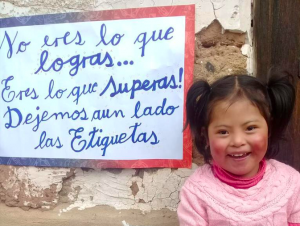 No eres lo que
logras...
Eres lo que Superas!
Dejemos aun lado
las Etiquetas